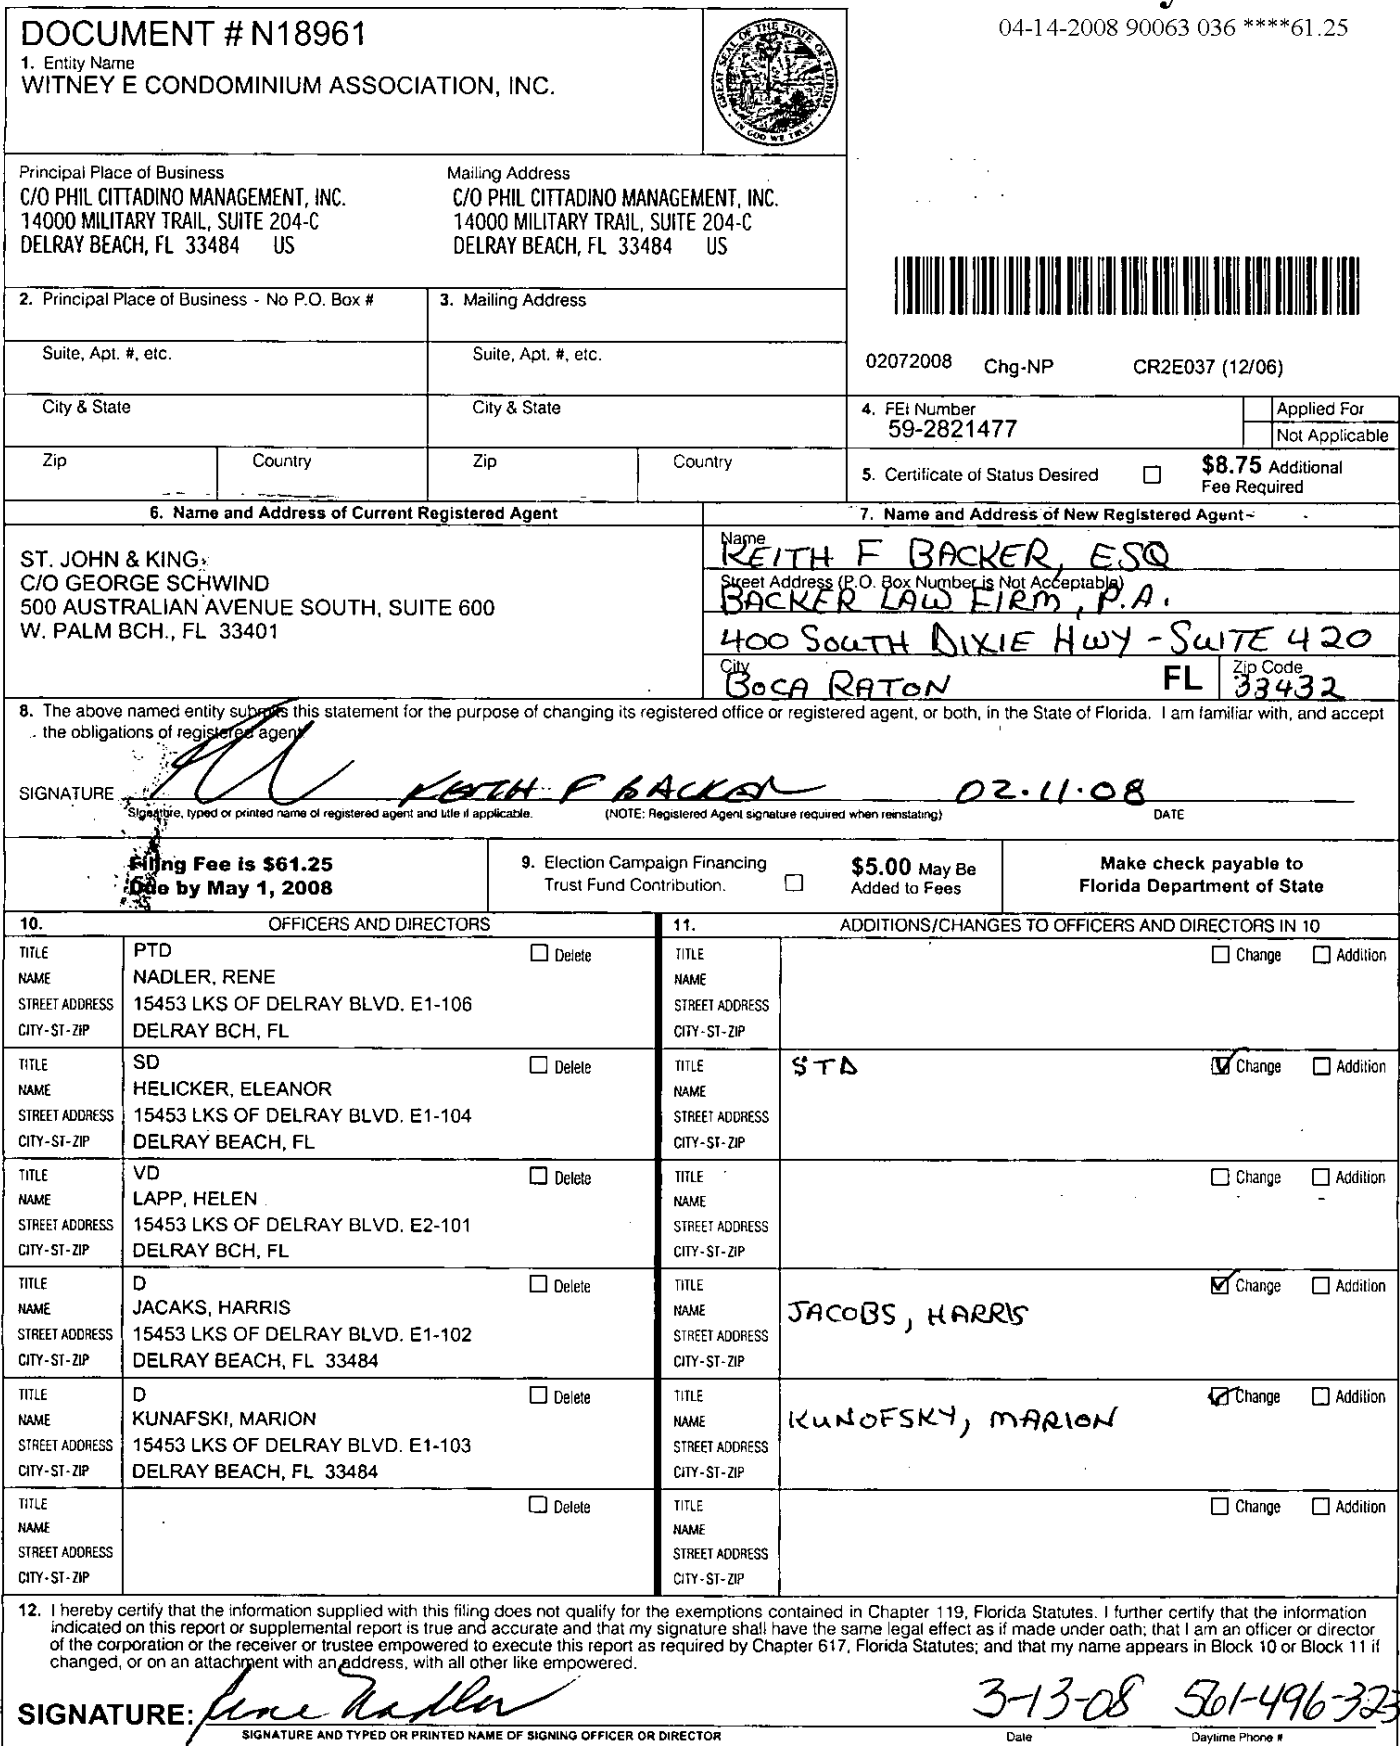 04-14-2008 90063 036 ****61.25
DOCUMENT # N18961
1. Entity Name
WITNEY E CONDOMINIUM ASSOCIATION, INC.
GREAT SEAL OF THE STATE OF FLORIDA
IN GOD WE TRUST
Principal Place of Business
C/O PHIL CITTADINO MANAGEMENT, INC.
14000 MILITARY TRAIL, SUITE 204-C
DELRAY BEACH, FL 33484 US
Mailing Address
C/O PHIL CITTADINO MANAGEMENT, INC.
14000 MILITARY TRAIL, SUITE 204-C
DELRAY BEACH, FL 33484 US
2. Principal Place of Business - No P.O. Box #
3. Mailing Address
Suite, Apt. #, etc.
Suite, Apt. #, etc.
02072008 Chg-NP CR2E037 (12/06)
City & State
City & State
4. FEI Number
59-2821477
Applied For
Not Applicable
Zip Country
Zip Country
5. Certificate of Status Desired
$8.75 Additional
Fee Required
6. Name and Address of Current Registered Agent
ST. JOHN & KING
C/O GEORGE SCHWIND
500 AUSTRALIAN AVENUE SOUTH, SUITE 600
W. PALM BCH., FL 33401
7. Name and Address of New Registered Agent
Name
KEITH F BACKER, ESQ
Street Address (P.O. Box Number is Not Acceptable)
BACKER LAW FIRM, P.A.
400 SOUTH DIXIE HWY - SUITE 420
City
BOCA RATON FL
Zip Code
33432
8. The above named entity submits this statement for the purpose of changing its registered office or registered agent, or both, in the State of Florida. I am familiar with, and accept
the obligations of registered agent.
SIGNATURE KEITH F BACKER 02.11.08
Signature, typed or printed name of registered agent and title if applicable. (NOTE: Registered Agent signature required when reinstating) DATE
Filing Fee is $61.25
Due by May 1, 2008
9. Election Campaign Financing
Trust Fund Contribution.
$5.00 May Be
Added to Fees
Make check payable to
Florida Department of State
10. OFFICERS AND DIRECTORS
11. ADDITIONS/CHANGES TO OFFICERS AND DIRECTORS IN 10
TITLE PTD Delete
NAME NADLER, RENE
STREET ADDRESS 15453 LKS OF DELRAY BLVD. E1-106
CITY-ST-ZIP DELRAY BCH, FL
TITLE Change Addition
NAME
STREET ADDRESS
CITY-ST-ZIP
TITLE SD Delete
NAME HELICKER, ELEANOR
STREET ADDRESS 15453 LKS OF DELRAY BLVD. E1-104
CITY-ST-ZIP DELRAY BEACH, FL
TITLE STD Change Addition
NAME
STREET ADDRESS
CITY-ST-ZIP
TITLE VD Delete
NAME LAPP, HELEN
STREET ADDRESS 15453 LKS OF DELRAY BLVD. E2-101
CITY-ST-ZIP DELRAY BCH, FL
TITLE Change Addition
NAME
STREET ADDRESS
CITY-ST-ZIP
TITLE D Delete
NAME JACAKS, HARRIS
STREET ADDRESS 15453 LKS OF DELRAY BLVD. E1-102
CITY-ST-ZIP DELRAY BEACH, FL 33484
TITLE Change Addition
NAME JACOBS, HARRIS
STREET ADDRESS
CITY-ST-ZIP
TITLE D Delete
NAME KUNAFSKI, MARION
STREET ADDRESS 15453 LKS OF DELRAY BLVD. E1-103
CITY-ST-ZIP DELRAY BEACH, FL 33484
TITLE Change Addition
NAME KUNOFSKY, MARION
STREET ADDRESS
CITY-ST-ZIP
TITLE Delete
NAME
STREET ADDRESS
CITY-ST-ZIP
TITLE Change Addition
NAME
STREET ADDRESS
CITY-ST-ZIP
12. I hereby certify that the information supplied with this filing does not qualify for the exemptions contained in Chapter 119, Florida Statutes. I further certify that the information
indicated on this report or supplemental report is true and accurate and that my signature shall have the same legal effect as if made under oath; that I am an officer or director
of the corporation or the receiver or trustee empowered to execute this report as required by Chapter 617, Florida Statutes; and that my name appears in Block 10 or Block 11 if
changed, or on an attachment with an address, with all other like empowered.
SIGNATURE: Rene Nadler 3-13-08 561-496-323
SIGNATURE AND TYPED OR PRINTED NAME OF SIGNING OFFICER OR DIRECTOR Date Daytime Phone #